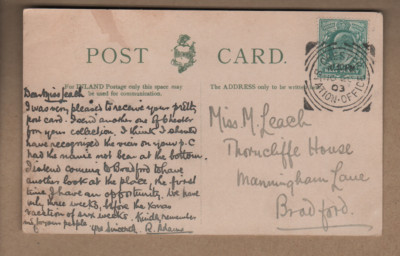 POST CARD.
For INLAND Postage only this space may be used for communication.
The ADDRESS only to be written here.
Dear Miss Leach
I was very pleased to receive your pretty
post card. I send another one of Chester
for your collection. I think I should
have recognised the view on your p.c
had the name not been at the bottom.
I intend coming to Bradford to have
another look at the place, the first
time I have an opportunity. We have
only three weeks, before the Xmas
vacation of six weeks. Kindly remember
me to your people
Yrs Sincerely
Miss M. Leach
Thorncliffe House
Manningham Lane
Bradford.
03
STATION-OFFICE